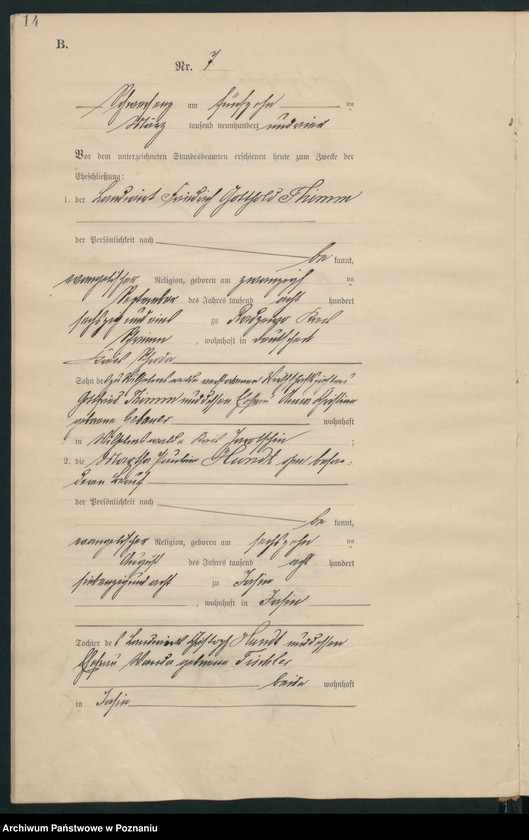 14
B.
Nr. 7.
Schwersenz am fünfzehn im
März tausend neunhundert und vier
Vor dem unterzeichneten Standesbeamten erschienen heute zum Zwecke der
Eheschließung:
1. der Landwirt Friedrich Gotthold Thimm
der Persönlichkeit nach
be kannt,
evangelischer Religion, geboren am zwanzigsten im
September des Jahres tausend acht hundert
sechzig und zu Kreis
, wohnhaft in Deutscheck
Kreis
Sohn des zu Wilhelmswalde verstorbenen
Gottfried Thimm und dessen Ehefrau Anna
geborene wohnhaft
in Wilhelmswalde Kreis Jarotschin ;
2. die Martha Pauline Hundt ohne beson-
deren Beruf
der Persönlichkeit nach
be kannt,
evangelischer Religion, geboren am sechszehn im
August des Jahres tausend acht hundert
siebenzig und acht zu Jasin
, wohnhaft in Jasin
Tochter des Landwirt Christoph Hundt und dessen
Ehefrau Wanda geborene Tischler
beide wohnhaft
in Jasin
Archiwum Państwowe w Poznaniu